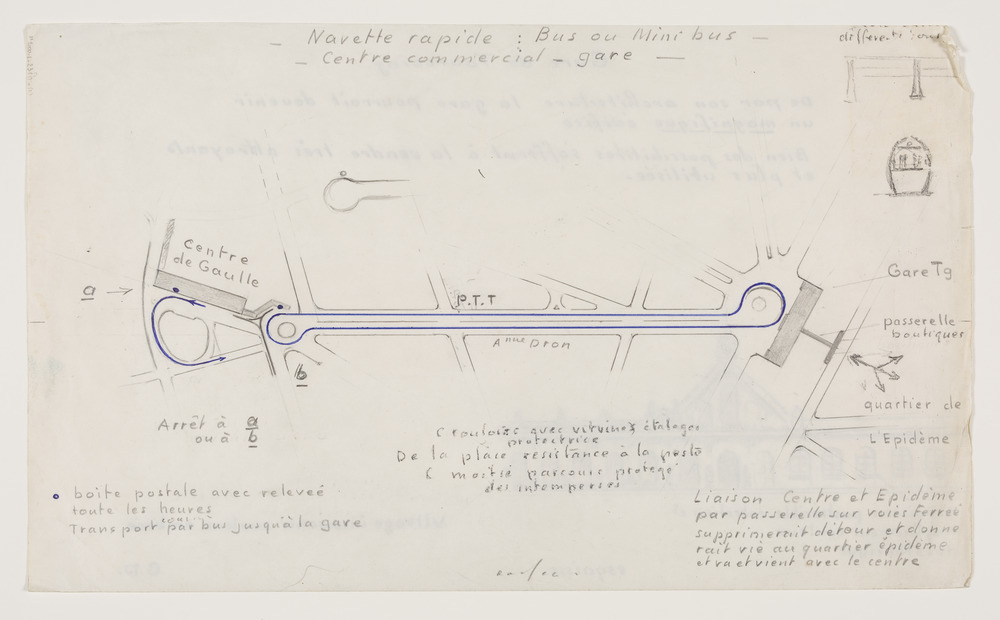 Navette rapide : Bus ou Mini bus
Centre commercial - gare
Centre
de Gaulle
a
P.T.T
Gare Tg
passerelle
boutiques
A nue Dron
b
quartier de
L'Epidème
Arrêt à a
ou à b
avec vitrines étalages
protectrice
De la place résistance à la poste
moitié parcours protégé
des intemperies
boite postale avec releveé
toute les heures
Transport par bus jusqu'à la gare
Liaison Centre et Epidème
par passerelle sur voies Ferreé
supprimerait détour et donne
rait vie au quartier épidème
et va et vient avec le centre